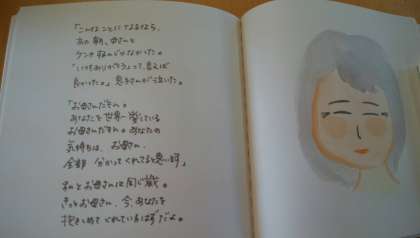 「こんなことになるなら、
あの朝、母さんと
ケンカなんじゃなかった。
「いつもありがとうって、言えば
良かった。」 息子さんが泣いた。
「お母さんだもん。
あなたを世界一愛している
お母さんだもん。あなたの
気持ちは、お母さん、
全部 分かってくれてると思うよ」
私とお母さんは同じ歳。
きっとお母さん、今、あなたを
抱きしめてくれているはずだよ。